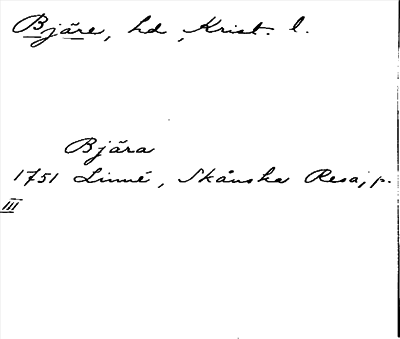 Bjäre, hd, Krist. l.
Bjära
1751 Linné, Skånska Resa, p.
III